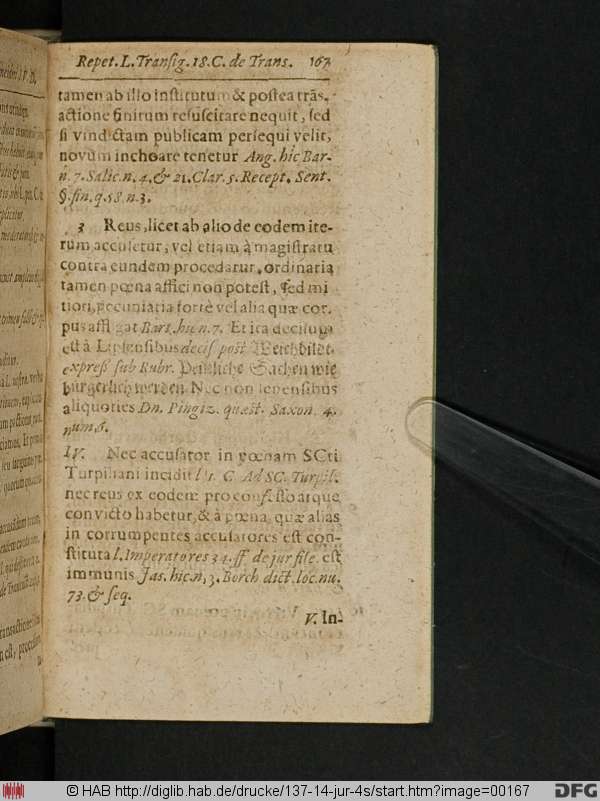 Repet. L. Transig. 18. C. de Trans. 167
tamen ab illo institutum & postea trãs-
actione finitum resuscitare nequit, sed
si vindictam publicam persequi velit,
novum inchoare tenetur Ang. hîc Bar-
n. 7. Salic. n. 4. & 21. Clar. 5. Recept. Sent.
§. fin. q. 58. n. 3.
3 Reus, licet ab alio de eodem ite-
rum accusetur, vel etiam à magistratu
contra eundem procedatur, ordinaria
tamen pœna affici non potest, sed mi
tiori, pecuniaria fortè vel alia quæ cor-
pus affligat Bars. hic n. 7. Et ita decisum
est à Lipsensibus decis. post Weichbildt.
expreß sub Rubr. Peinliche Sachen wie
bürgerlich werden. Nec non Ienensibus
aliquoties Dn. Pingiz. quæst. Saxon. 4.
num. 6.
IV. Nec accusator in pœnam SCti
Turpiliani incidit l. 1. C. Ad SC. Turpil.
nec reus ex eodem pro confesso atque
convicto habetur, & à pœna, quæ alias
in corrumpentes accusatores est con-
stituta l. Imperatores 34. ff. de jur fisc. est
immunis Jas. hîc. n, 3. Borch dict. loc. nu.
73. & seq.
V. In-
© HAB http://diglib.hab.de/drucke/137-14-jur-4s/start.htm?image=00167
DFG